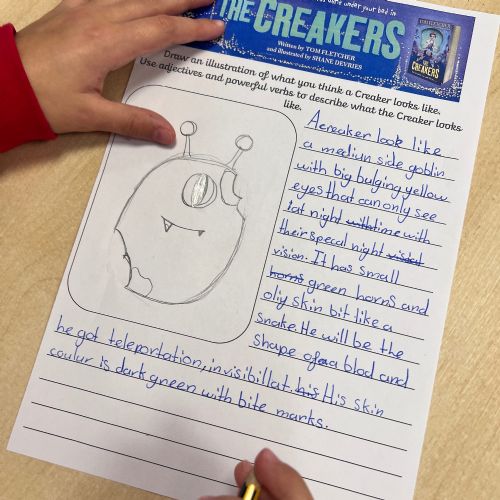 under your bed in
THE CREAKERS
Written by TOM FLETCHER
and illustrated by SHANE DEVRIES
TOM FLETCHER
THE
CREAKERS
Draw an illustration of what you think a Creaker looks like.
Use adjectives and powerful verbs to describe what the Creaker looks
like.
A creaker look like
a mediun side goblin
with big bulging yellow
eyes that can only see
iat night with time with
their specal night visist
vision. It has small
horns green horns and
oliy skin bit like a
snake. He will be the
shape of a a blod and
he got teleportation, invisibillat. his His skin
coulur is dark green with bite marks.